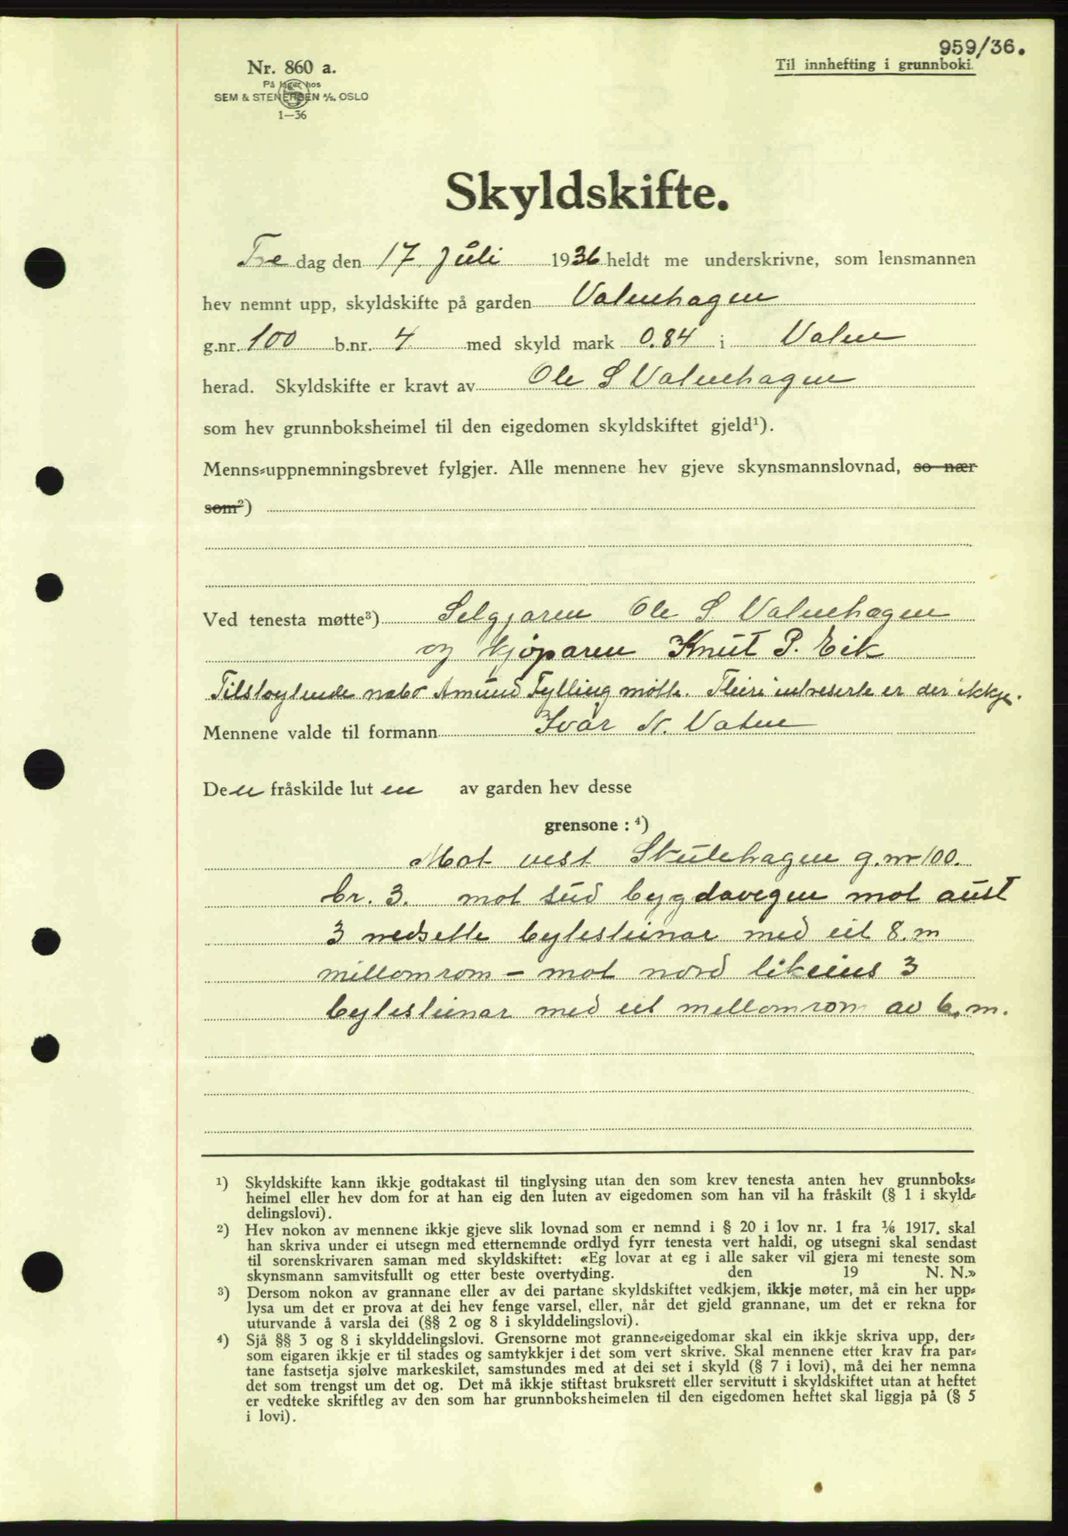 959/36.
Nr. 860 a.
Til innhefting i grunnboki.
På lager hos
SEM & STENERSEN A/S. OSLO
1—36
Skyldskifte.
Fre dag den 17 Juli 1936 heldt me underskrivne, som lensmannen
hev nemnt upp, skyldskifte på garden Vatnehagen
g.nr. 100 b.nr. 4 med skyld mark 0.84 i Vatne
herad. Skyldskifte er kravt av Ole S Vatnehagen
som hev grunnboksheimel til den eigedomen skyldskiftet gjeld¹).
Menns-uppnemningsbrevet fylgjer. Alle mennene hev gjeve skynsmannslovnad, so nær
som²)
Ved tenesta møtte³) Selgjaren Ole S Vatnehagen
og kjøparen Knut P. Eik
Tilstøytende nabo Amund Fylling møtte. Fleire intreserte er der ikkje.
Mennene valde til formann Ivar N. Vatne
Den fråskilde luten av garden hev desse
grensone : ⁴)
Mot vest Skulehagen g.nr 100.
br. 3. mot sud bygdavegen mot aust
3 nedsette bytesteinar med eit 8. m
millomrom - mot nord likeins 3
bytesteinar med eit mellomrom av 6. m.
¹) Skyldskifte kann ikkje godtakast til tinglysing utan den som krev tenesta anten hev grunnboks-
heimel eller hev dom for at han eig den luten av eigedomen som han vil ha fråskilt (§ 1 i skyld-
delingslovi).
²) Hev nokon av mennene ikkje gjeve slik lovnad som er nemnd i § 20 i lov nr. 1 fra 1/6 1917, skal
han skriva under ei utsegn med etternemnde ordlyd fyrr tenesta vert haldi, og utsegni skal sendast
til sorenskrivaren saman med skyldskiftet: «Eg lovar at eg i alle saker vil gjera mi teneste som
skynsmann samvitsfullt og etter beste overtyding. den 19 N. N.»
³) Dersom nokon av grannane eller av dei partane skyldskiftet vedkjem, ikkje møter, må ein her upp-
lysa um det er prova at dei hev fenge varsel, eller, når det gjeld grannane, um det er rekna for
uturvande å varsla dei (§§ 2 og 8 i skylddelingslovi).
⁴) Sjå §§ 3 og 8 i skylddelingslovi. Grensorne mot granne-eigedomar skal ein ikkje skriva upp, der-
som eigaren ikkje er til stades og samtykkjer i det som vert skrive. Skal mennene etter krav fra par-
tane fastsetja sjølve markeskilet, samstundes med at dei set i skyld (§ 7 i lovi), må dei her nemna
det som trengst um det og. Det må ikkje stiftast bruksrett eller servitutt i skyldskiftet utan at heftet
er vedteke skriftleg av den som har grunnboksheimelen til den eigedomen heftet skal liggja på (§ 5
i lovi).